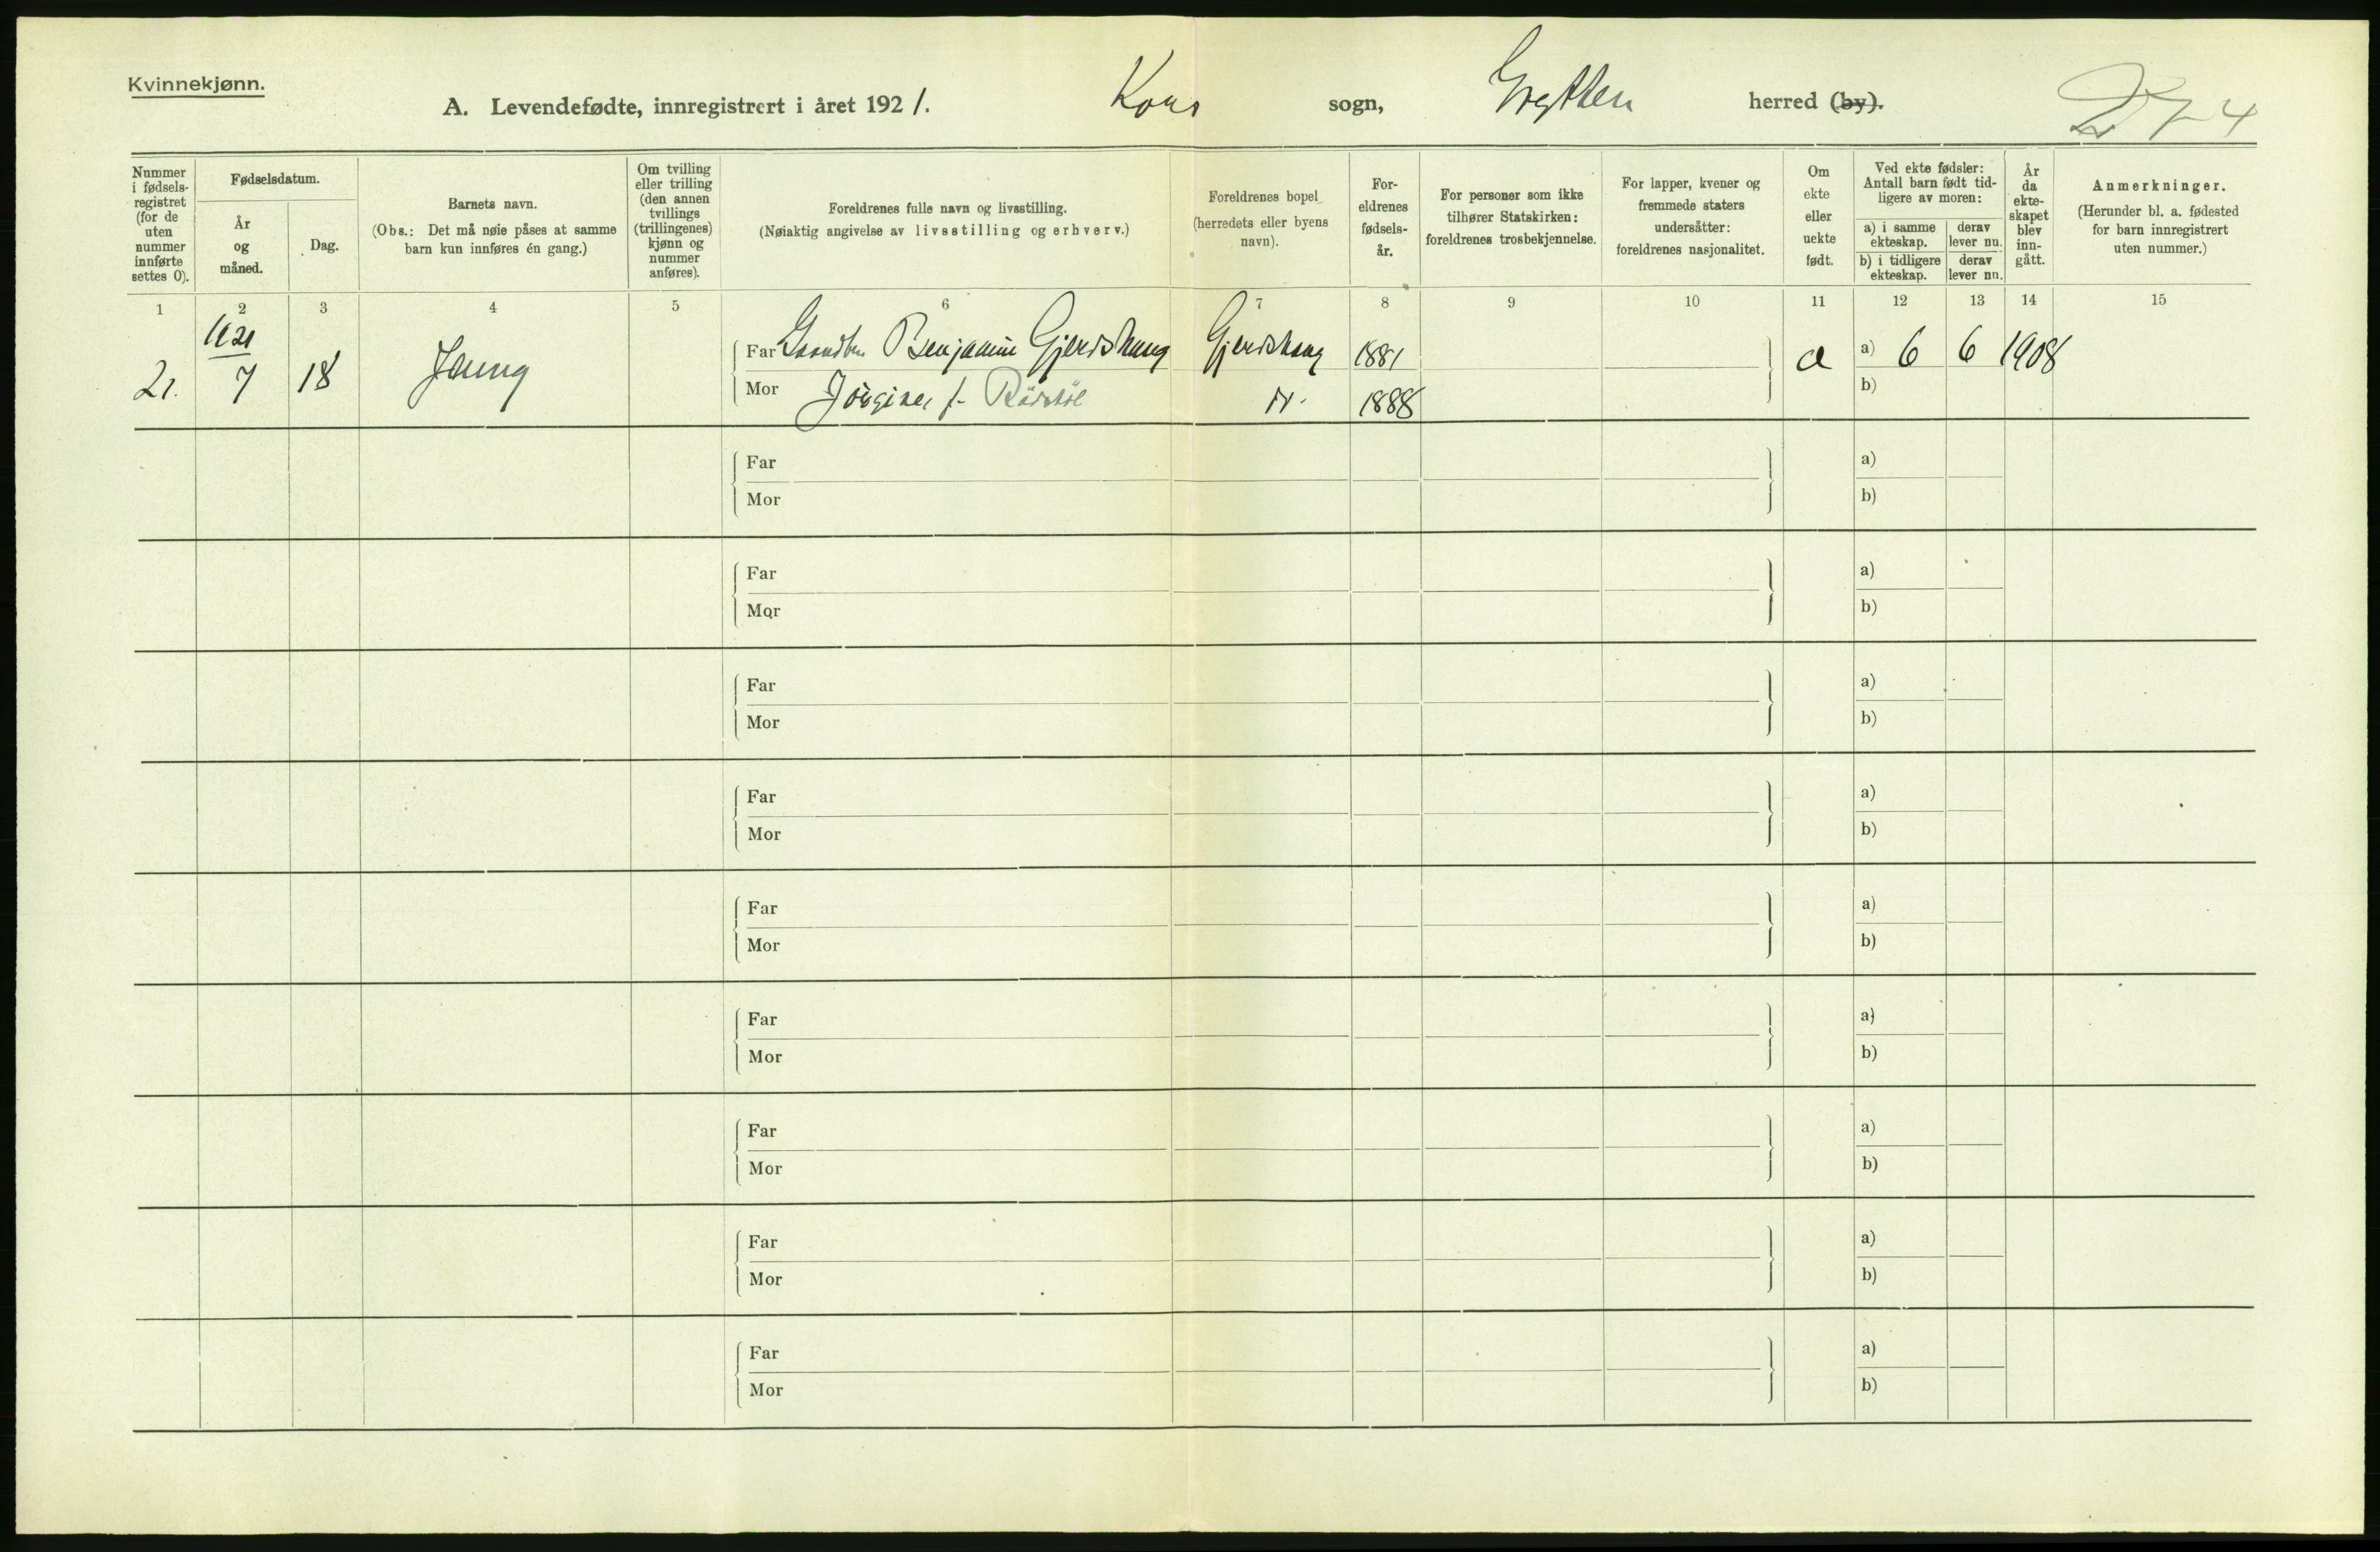 Kvinnekjønn.
A. Levendefødte, innregistrert i året 1921. Kors sogn, Grytten herred (by).
274
Nummer i fødsels-registret (for de uten nummer innførte settes 0).
Fødselsdatum.
År og måned.
Dag.
Barnets navn.
(Obs.: Det må nøie påses at samme barn kun innføres én gang.)
Om tvilling eller trilling (den annen tvillings (trillingenes) kjønn og nummer anføres).
Foreldrenes fulle navn og livsstilling.
(Nøiaktig angivelse av livsstilling og erhverv.)
Foreldrenes bopel (herredets eller byens navn).
For-eldrenes fødsels-år.
For personer som ikke tilhører Statskirken: foreldrenes trosbekjennelse.
For lapper, kvener og fremmede staters undersåtter: foreldrenes nasjonalitet.
Om ekte eller uekte født.
Ved ekte fødsler: Antall barn født tid-ligere av moren:
a) i samme ekteskap.
derav lever nu.
b) i tidligere ekteskap.
derav lever nu.
År da ekte-skapet blev inn-gått.
Anmerkninger.
(Herunder bl. a. fødested for barn innregistrert uten nummer.)
1 2 3 4 5 6 7 8 9 10 11 12 13 14 15
1921
21. 7 18 Jenny
Far Gaardbr. Benjamin Gjerdshaug Gjerdshaug 1881
Mor 1888
a) 6 6 1908
b)
Far a)
Mor b)
Far a)
Mor b)
Far a)
Mor b)
Far a)
Mor b)
Far a)
Mor b)
Far a)
Mor b)
Far a)
Mor b)
Far a)
Mor b)
Far a)
Mor b)